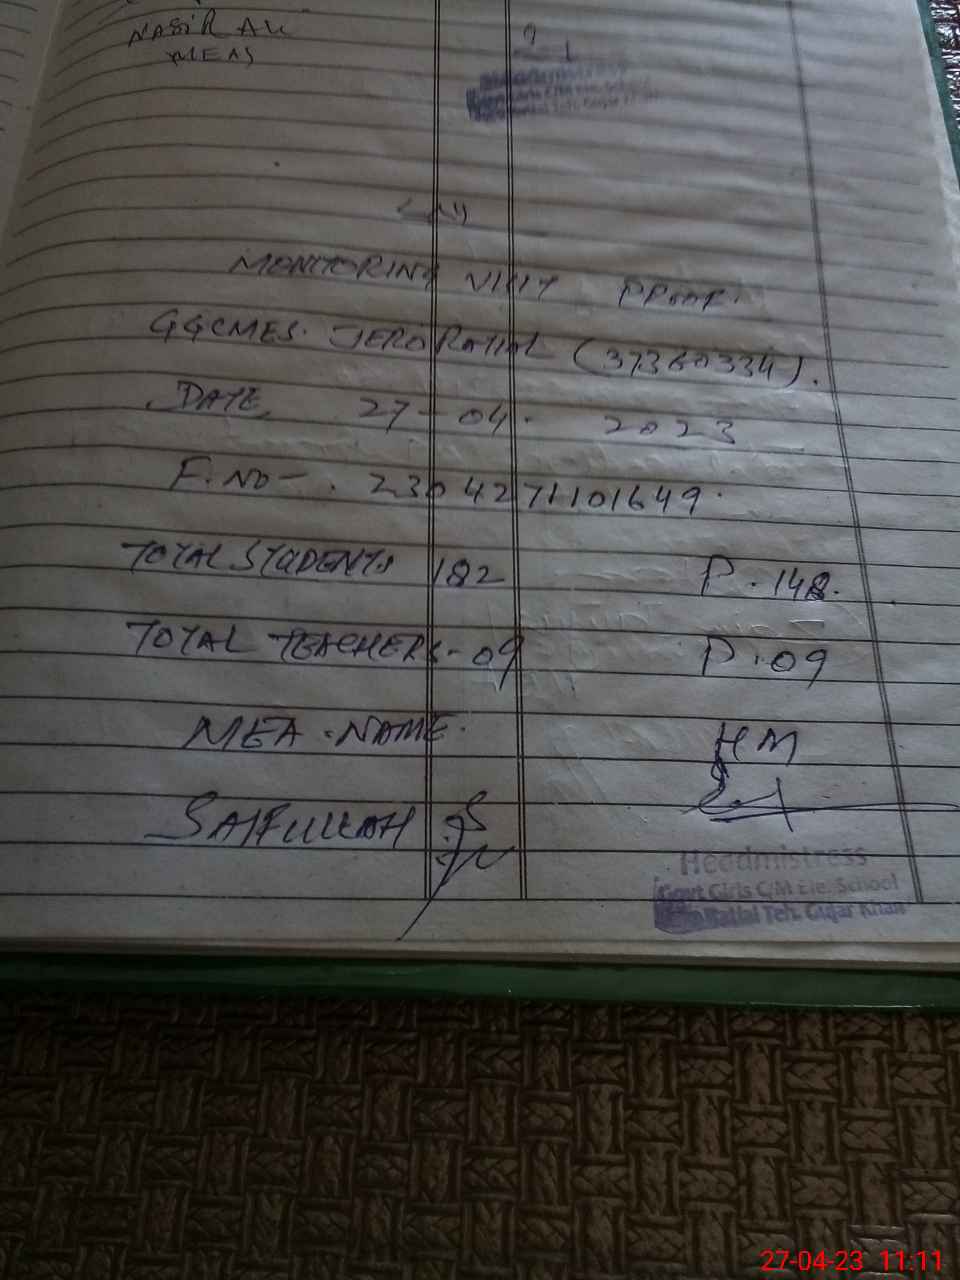 NASIR ALI
MEAS
MONITORING VISIT
GGCMES. JERO RATIAL (37360334).
DATE 27-04-2023
F.NO- . 23042711101649.
TOTAL STUDENTS 182 P.148.
TOTAL TEACHERS-09 P.09
MEA.NAME. HM
SAIFULLAH
Headmistress
Govt Girls C/M Ele. School
Ratial Teh. Gujar Khan
27-04-23 11:11